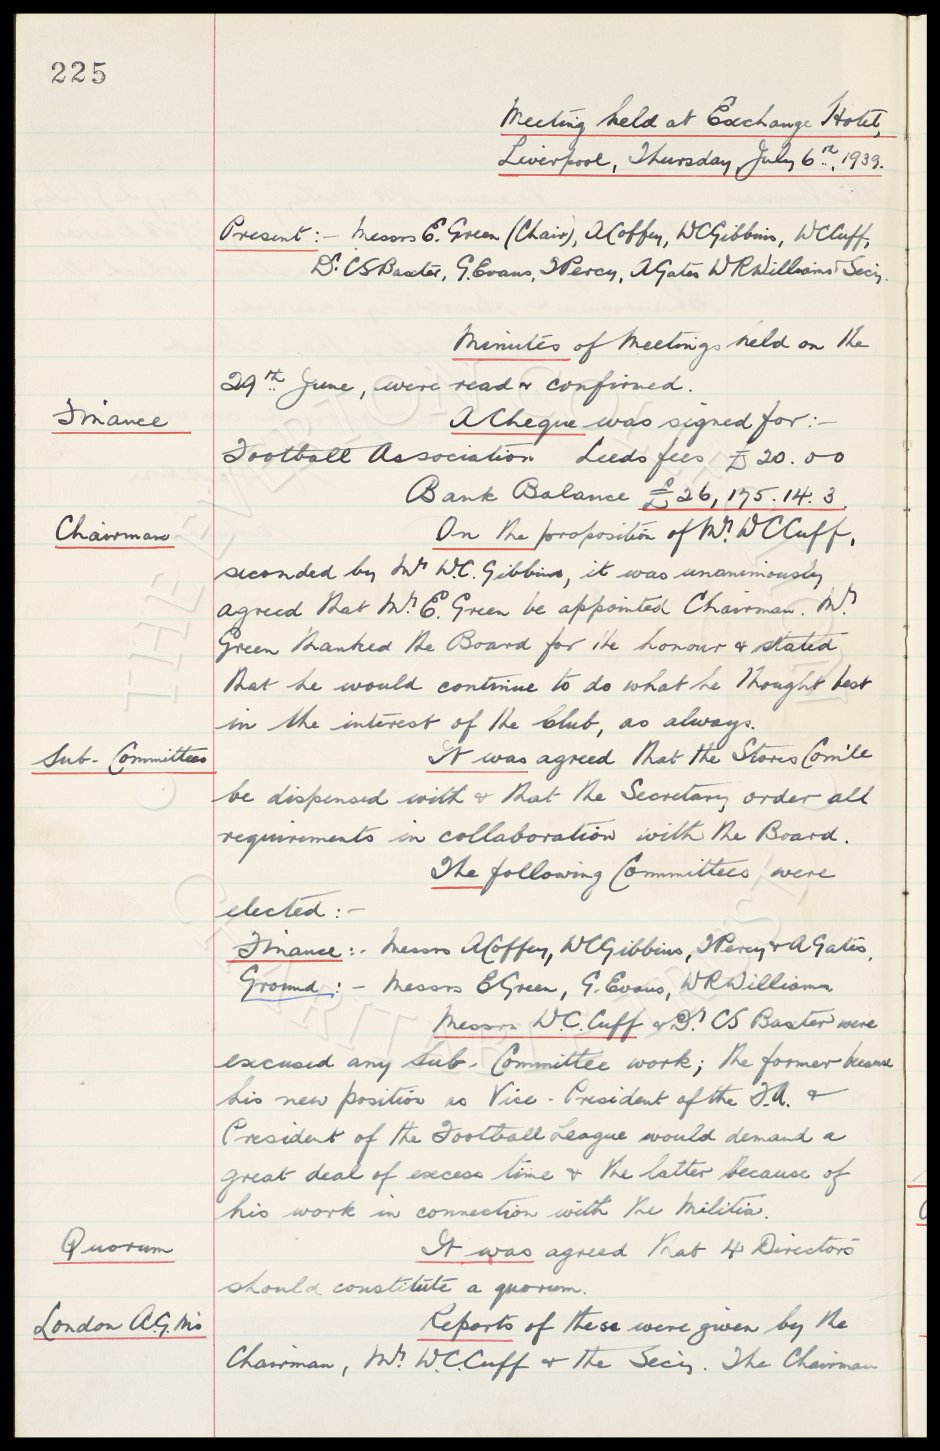 225
Meeting held at Exchange Hotel,
Liverpool, Thursday, July 6th, 1939.
Present:- Messrs E. Green (Chair), A Coffey, WC Gibbins, WC Cuff,
Dr. CS Baxter, G. Evans, T Percy, A Gates WR Williams & Secy.
Minutes of Meetings held on the
29th June, were read & confirmed.
Finance
A Cheque was signed for:-
Football Association Leeds fees £20.00
Bank Balance £26,175.14.3.
Chairman
On the proposition of Mr. WC Cuff,
seconded by Mr W.C. Gibbins, it was unanimously
agreed that Mr. E. Green be appointed Chairman. Mr.
Green thanked the Board for the honour & stated
that he would continue to do what he thought best
in the interest of the Club, as always.
Sub-Committees
It was agreed that the Stores Com'tee
be dispensed with & that the Secretary order all
requirements in collaboration with the Board.
The following Committees were
elected:-
Finance:- Messrs A Coffey, WC Gibbins, T Percy & A Gates.
Ground:- Messrs E Green, G. Evans, WR Williams
Messrs W.C. Cuff & Dr. CS Baxter were
excused any Sub-Committee work; the former because
his new position as Vice-President of the F.A. &
President of the Football League would demand a
great deal of excess time & the latter because of
his work in connection with the Militia.
Quorum
It was agreed that 4 Directors
should constitute a quorum.
London A.G.M's
Reports of these were given by the
Chairman, Mr. W.C. Cuff & the Secy. The Chairman
THE EVERTON COLLECTION
CHARITABLE TRUST